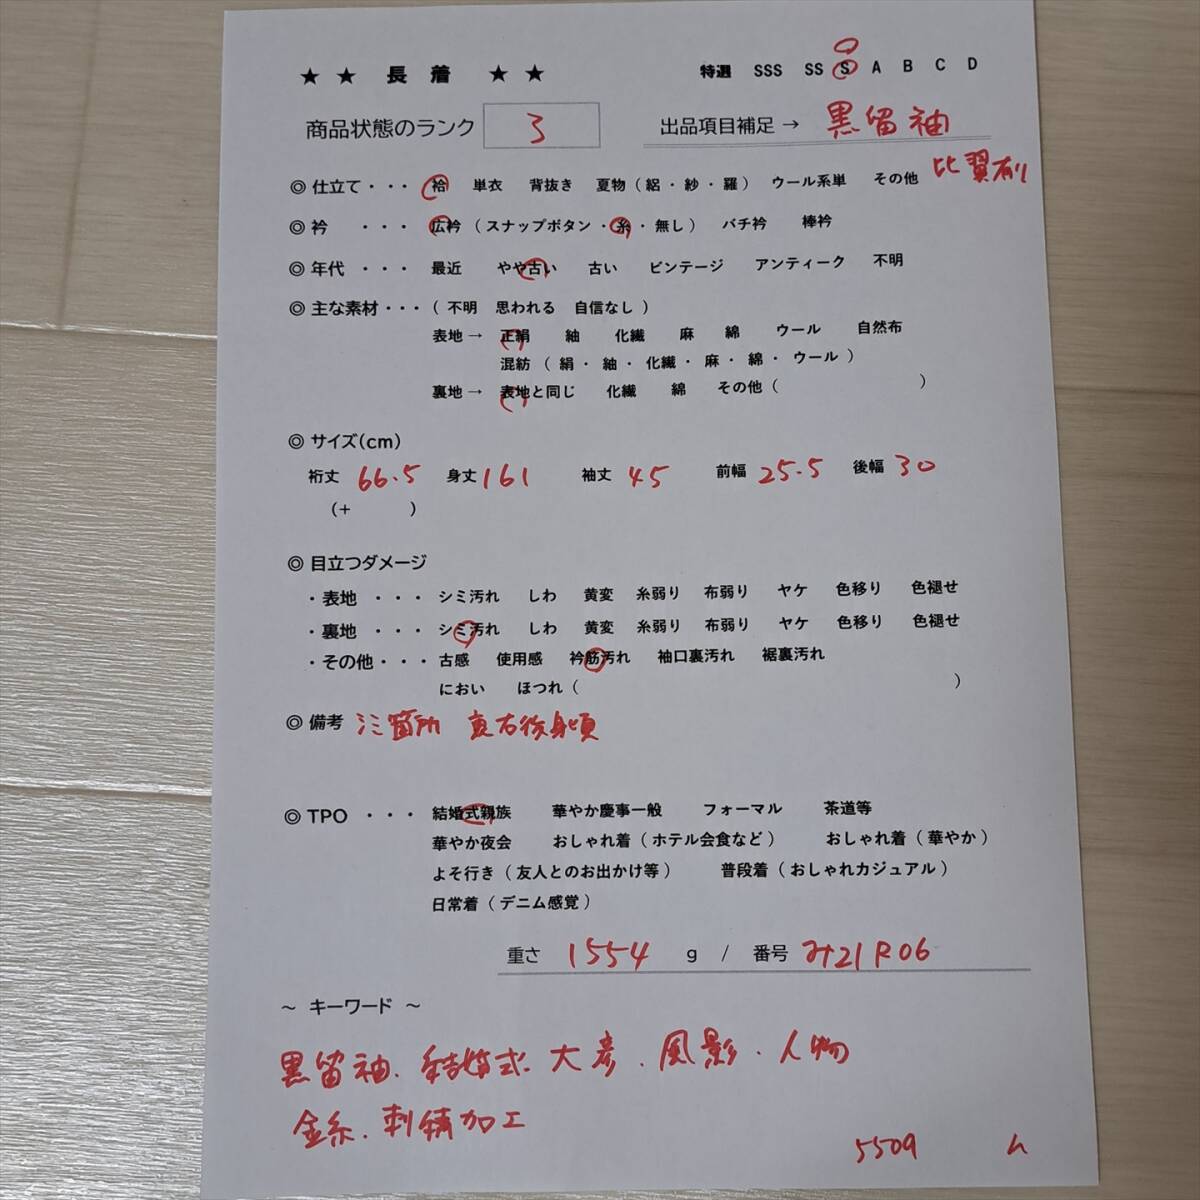 ★ ★ 長 着 ★ ★ 特選 SSS SS S A B C D
商品状態のランク 3 出品項目補足 → 黒留袖
◎ 仕立て ・・・ 袷 単衣 背抜き 夏物 ( 絽 ・ 紗 ・ 羅 ) ウール系単 その他 比翼有り
◎ 衿 ・・・ 広衿 ( スナップボタン ・ 糸 ・ 無し ) バチ衿 棒衿
◎ 年代 ・・・ 最近 やや古い 古い ビンテージ アンティーク 不明
◎ 主な素材 ・・・ ( 不明 思われる 自信なし )
表地 → 正絹 紬 化繊 麻 綿 ウール 自然布
混紡 ( 絹 ・ 紬 ・ 化繊 ・ 麻 ・ 綿 ・ ウール )
裏地 → 表地と同じ 化繊 綿 その他 ( )
◎ サイズ(cm)
裄丈 66.5 身丈 161 袖丈 45 前幅 25.5 後幅 30
(+ )
◎ 目立つダメージ
・表地 ・・・ シミ汚れ しわ 黄変 糸弱り 布弱り ヤケ 色移り 色褪せ
・裏地 ・・・ シミ汚れ しわ 黄変 糸弱り 布弱り ヤケ 色移り 色褪せ
・その他 ・・・ 古感 使用感 衿筋汚れ 袖口裏汚れ 裾裏汚れ
におい ほつれ ( )
◎ 備考 シミ箇所 裏右後身頃
◎ TPO ・・・ 結婚式親族 華やか慶事一般 フォーマル 茶道等
華やか夜会 おしゃれ着 ( ホテル会食など ) おしゃれ着 ( 華やか )
よそ行き ( 友人とのお出かけ等 ) 普段着 ( おしゃれカジュアル )
日常着 ( デニム感覚 )
重さ 1554 g / 番号 み21R06
～ キーワード ～
黒留袖、結婚式、大彦、風影、人物
金糸、刺繍加工
5509